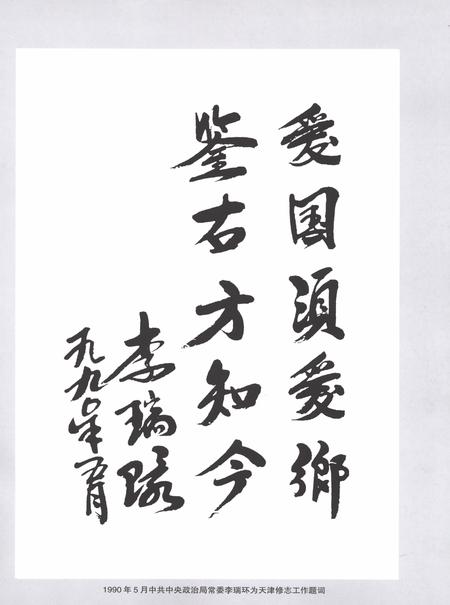 爱国须爱鄉
鉴古方知今
李瑞环
一九九〇年五月
1990 年 5 月中共中央政治局常委李瑞环为天津修志工作题词